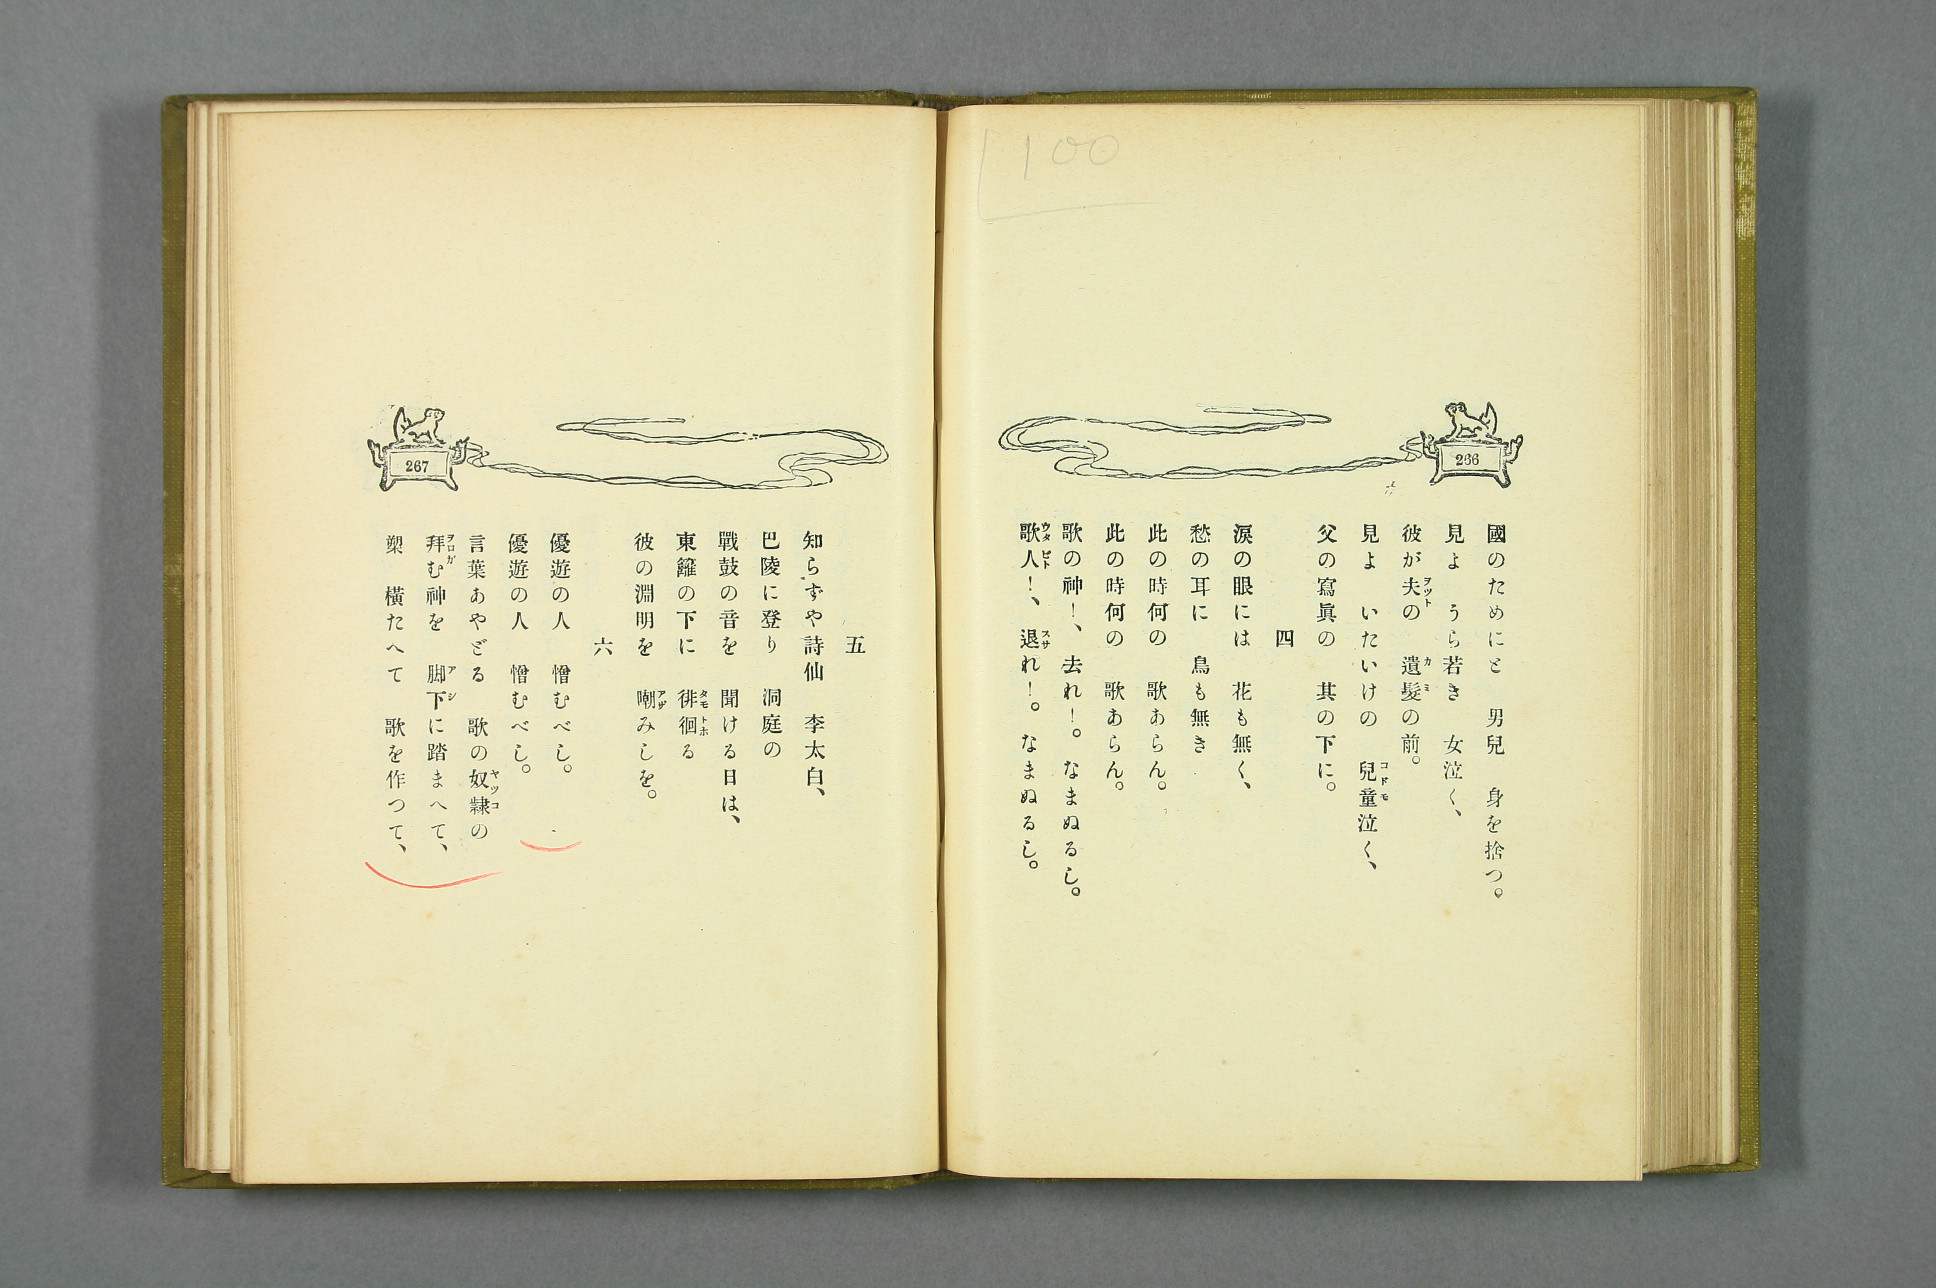 100
266
國のためにと　男兒　身を捨つ。
見よ　うら若き　女泣く、
彼が夫の　遺髮の前。
見よ　いたいけの　兒童泣く、
父の寫眞の　其の下に。
四
淚の眼には　花も無く、
愁の耳に　鳥も無き
此の時何の　歌あらん。
此の時何の　歌あらん。
歌の神！、去れ！。なまぬるし。
歌人！、退れ！。なまぬるし。
267
五
知らずや詩仙　李太白、
巴陵に登り　洞庭の
戰鼓の音を　聞ける日は、
東籬の下に　徘徊る
彼の淵明を　嘲みしを。
六
優遊の人　憎むべし。
優遊の人　憎むべし。
言葉あやどる　歌の奴隸の
拜む神を　脚下に踏まへて、
槊　橫たへて　歌を作つて、